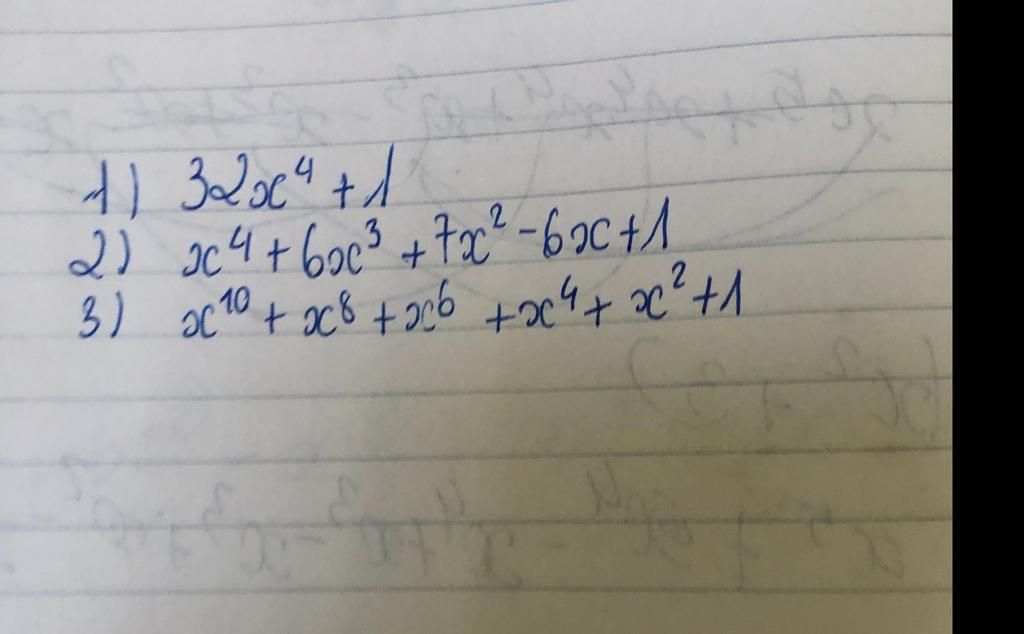 1) 32x⁴ + 1
2) x⁴ + 6x³ + 7x² - 6x + 1
3) x¹⁰ + x⁸ + x⁶ + x⁴ + x² + 1